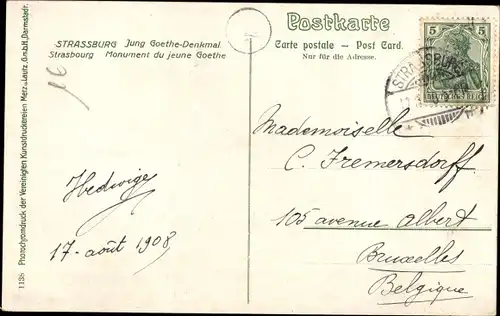 Postkarte
Carte postale – Post Card.
Nur für die Adresse.
STRASSBURG Jung Goethe-Denkmal
Strasbourg Monument du jeune Goethe
16
5 5
DEUTSCHES REICH
STRASSBURG
Mademoiselle
C. Fremersdorff
105 avenue Albert
Bruxelles
Belgique
Hedwige
17-août 1908
1136 Photochromdruck der Vereinigten Kunstdruckereien Metz & Lautz, G.m.b.H. Darmstadt.